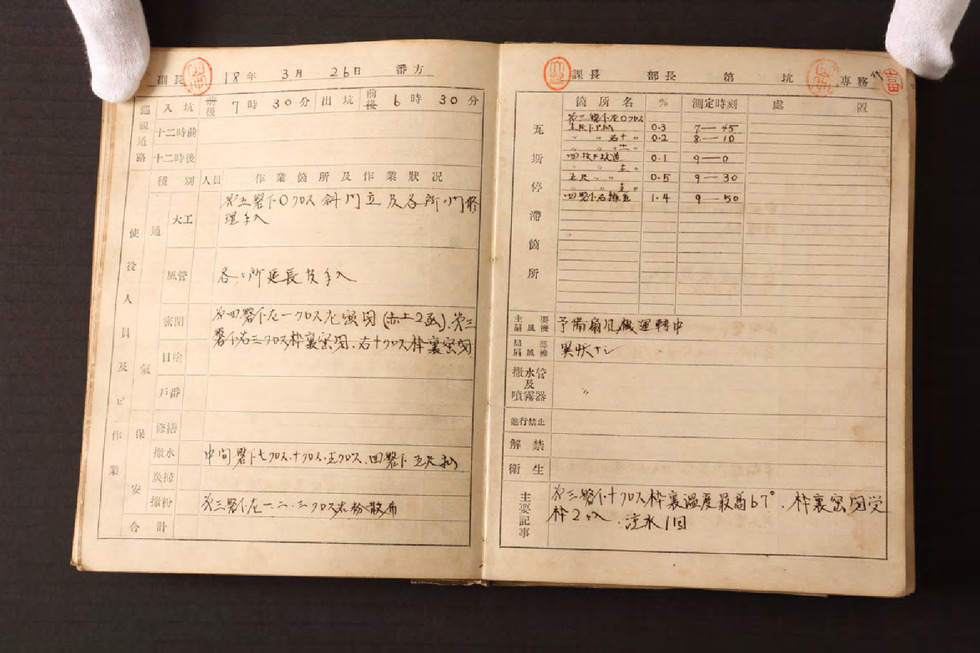 副長 18年 3月 26日 番方
巡視通路 入坑 前後 7時30分 出坑 前後 6時30分
十二時前
十二時後
種別 人員 作業箇所及作業狀況
使役人員及ビ作業
通氣保安
大工 第三盤下0クロス斜門立及各所小門修
理手入
風管 各ヶ所延長及手入
密閉 第四盤下左一クロス左密閉(赤土2函)、第三
盤下右三クロス枠裏密閉、右十クロス枠裏密閉
目塗
戶番
修繕
撒水 中間盤下七クロス、十クロス、四盤下五尺
炭掃
撒粉 第三盤下左一、二、三クロス岩粉散布
合計
課長 部長 第 坑 專務 代
瓦斯停滯箇所
箇所名 % 測定時刻 處置
第二盤下左0クロス
五尺下 0.3 7—45
〃 右十〃 0.2 8—10
四坑下坑道 0.1 9—0
五尺〃〃 0.5 9—30
四盤下右 1.4 9—50
主要扇風機 予備扇風機運轉中
局部扇風機 異狀ナシ
撒水管及噴霧器 〃
進行禁止
解禁
衛生
主要記事 第三盤下十クロス枠裏溫度最高67°、枠裏密閉受
枠2ヶ入、注水1回